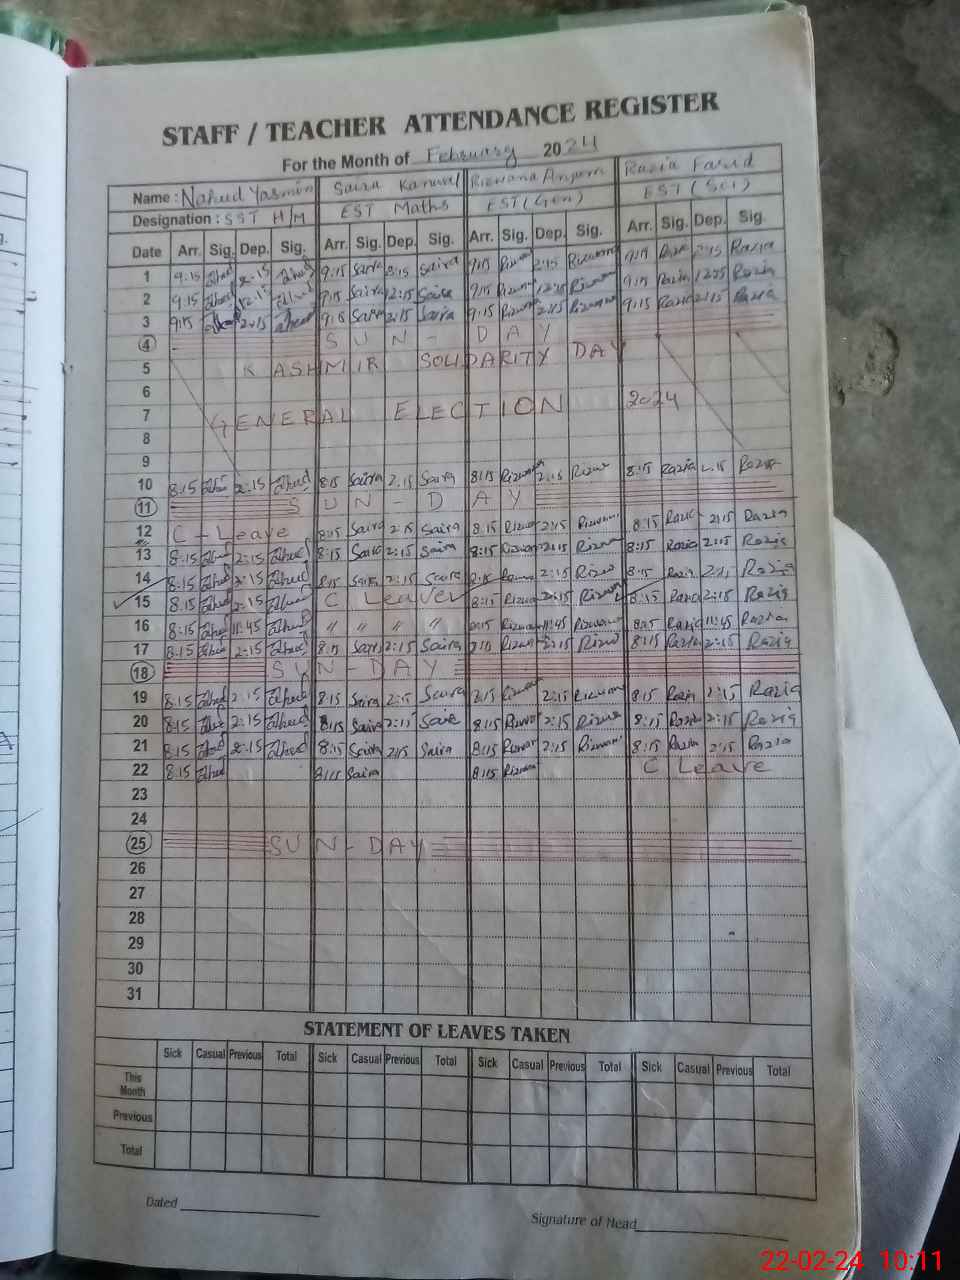 STAFF / TEACHER ATTENDANCE REGISTER
For the Month of February 2024
Name : Nahud Yasmin Saira Kanwal Rizwana Anjum Razia Farid
Designation : SST H/M EST Maths EST (Gen) EST (Sci)
Date Arr. Sig. Dep. Sig. Arr. Sig. Dep. Sig. Arr. Sig. Dep. Sig. Arr. Sig. Dep. Sig.
1 9:15 2:15 9:15 Saira 2:15 Saira 9:15 2:15 Rizwana 9:15 Razia 2:15 Razia
2 9:15 12:15 9:15 Saira 12:15 Saira 9:15 12:15 9:15 Razia 12:15 Razia
3 9:15 2:15 9:15 Saira 2:15 Saira 9:15 2:15 9:15 Razia 2:15 Razia
4 SUN - DAY
5 KASHMIR SOLIDARITY DAY
6
7 GENERAL ELECTION 2024
8
9
10 8:15 2:15 8:15 Saira 2:15 Saira 8:15 Rizwana 2:15 8:15 Razia 2:15 Razia
11 SUN - DAY
12 C - Leave 8:15 Saira 2:15 Saira 8:15 2:15 8:15 Razia 2:15 Razia
13 8:15 2:15 8:15 Saira 2:15 Saira 8:15 2:15 8:15 Razia 2:15 Razia
14 8:15 2:15 8:15 Saira 2:15 Saira 8:15 2:15 8:15 Razia 2:15 Razia
15 8:15 2:15 C Leave 8:15 2:15 8:15 Razia 2:15 Razia
16 8:15 11:45 " " " " 8:15 11:45 8:15 Razia 11:45 Razia
17 8:15 2:15 8:15 Saira 2:15 Saira 8:15 2:15 8:15 Razia 2:15 Razia
18 SUN - DAY
19 8:15 2:15 8:15 Saira 2:15 Saira 8:15 2:15 8:15 Razia 2:15 Razia
20 8:15 2:15 8:15 Saira 2:15 8:15 2:15 8:15 Razia 2:15 Razia
21 8:15 2:15 8:15 Saira 2:15 Saira 8:15 2:15 8:15 Razia 2:15 Razia
22 8:15 8:15 Saira 8:15 C Leave
23
24
25 SUN - DAY
26
27
28
29
30
31
STATEMENT OF LEAVES TAKEN
Sick Casual Previous Total Sick Casual Previous Total Sick Casual Previous Total Sick Casual Previous Total
This Month
Previous
Total
Dated
Signature of Head
22-02-24 10:11